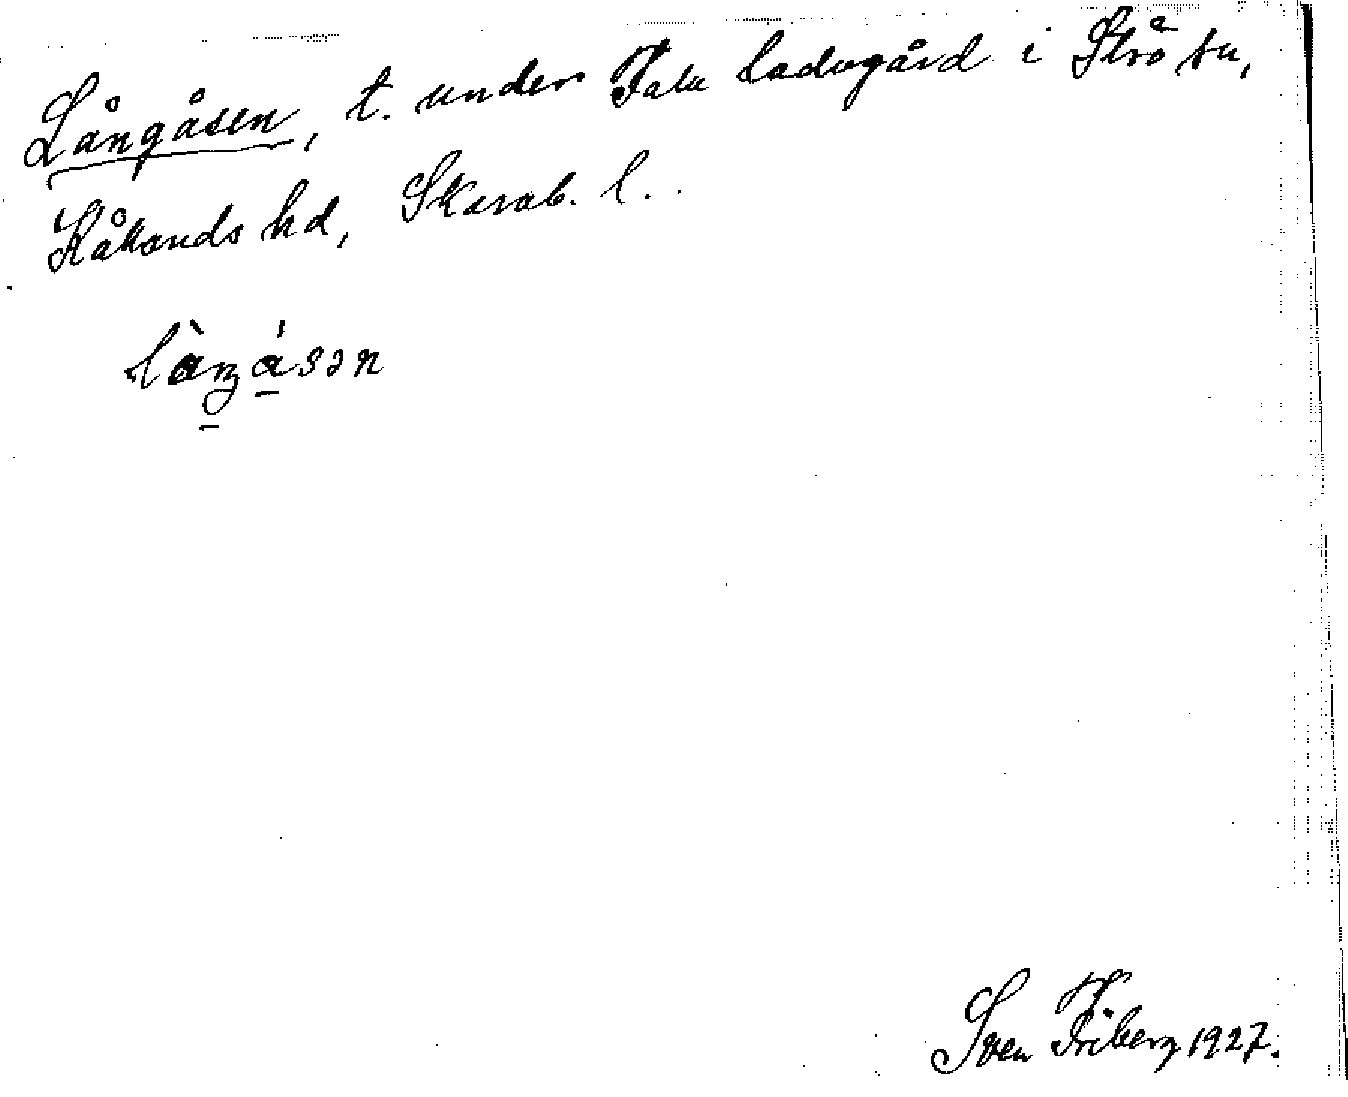 Långåsen, t. under Tala ladugård i Strö sn,
Kållands hd, Skarab. l.
làŋåsən
Sven Friberg 1927.